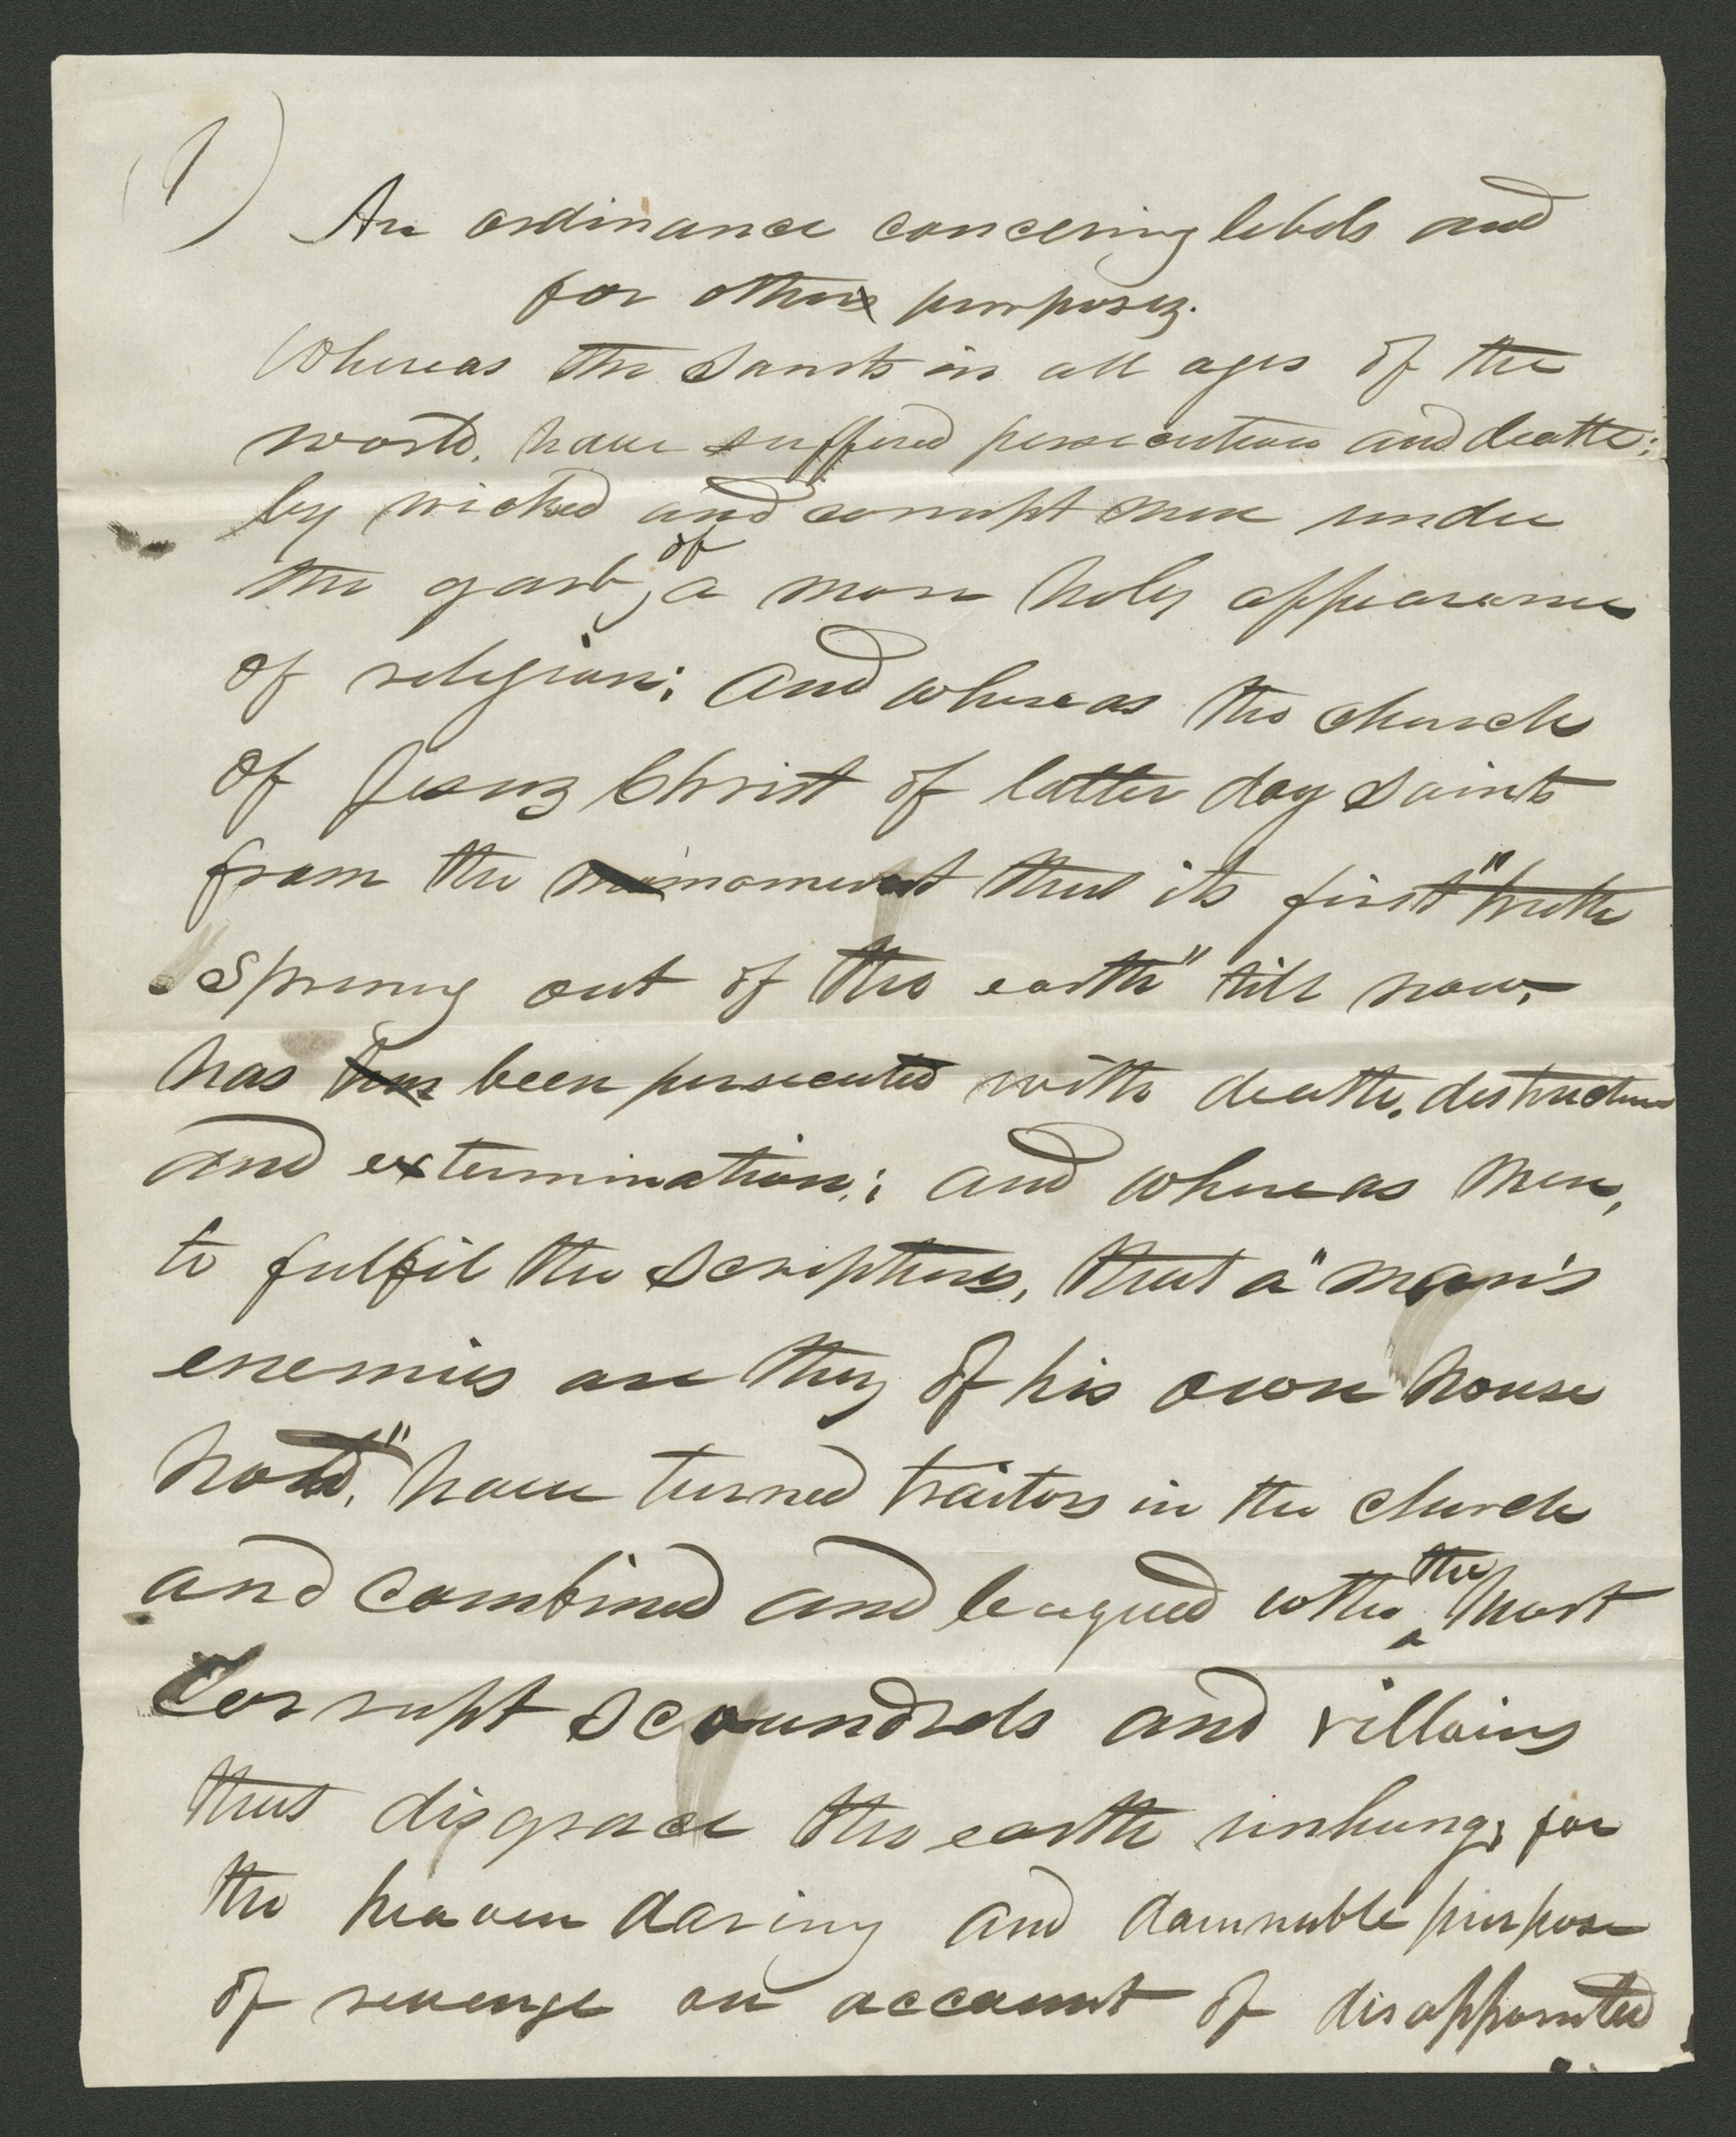 (1)
An ordinance concerning libels and
for other purposes.
Whereas the Saints in all ages of the
world, have suffered persecution and death:
by wicked and corrupt men under
the garb, of a more holy appearance
of religion; and whereas the church
of Jesus Christ of latter day Saints
from the moment that its first "truth
sprung out of the earth" till now,
has been persecuted with death, destruction
and extermination; and whereas men,
to fulfil the scriptures, that a "man's
enemies are they of his own house
hold," have turned traitors in the church
and combined and leagued with the most
Corrupt scoundrels and villains
that disgrace the earth unhung; for
the heaven daring and damnable purpose
of revenge on account of disappointed